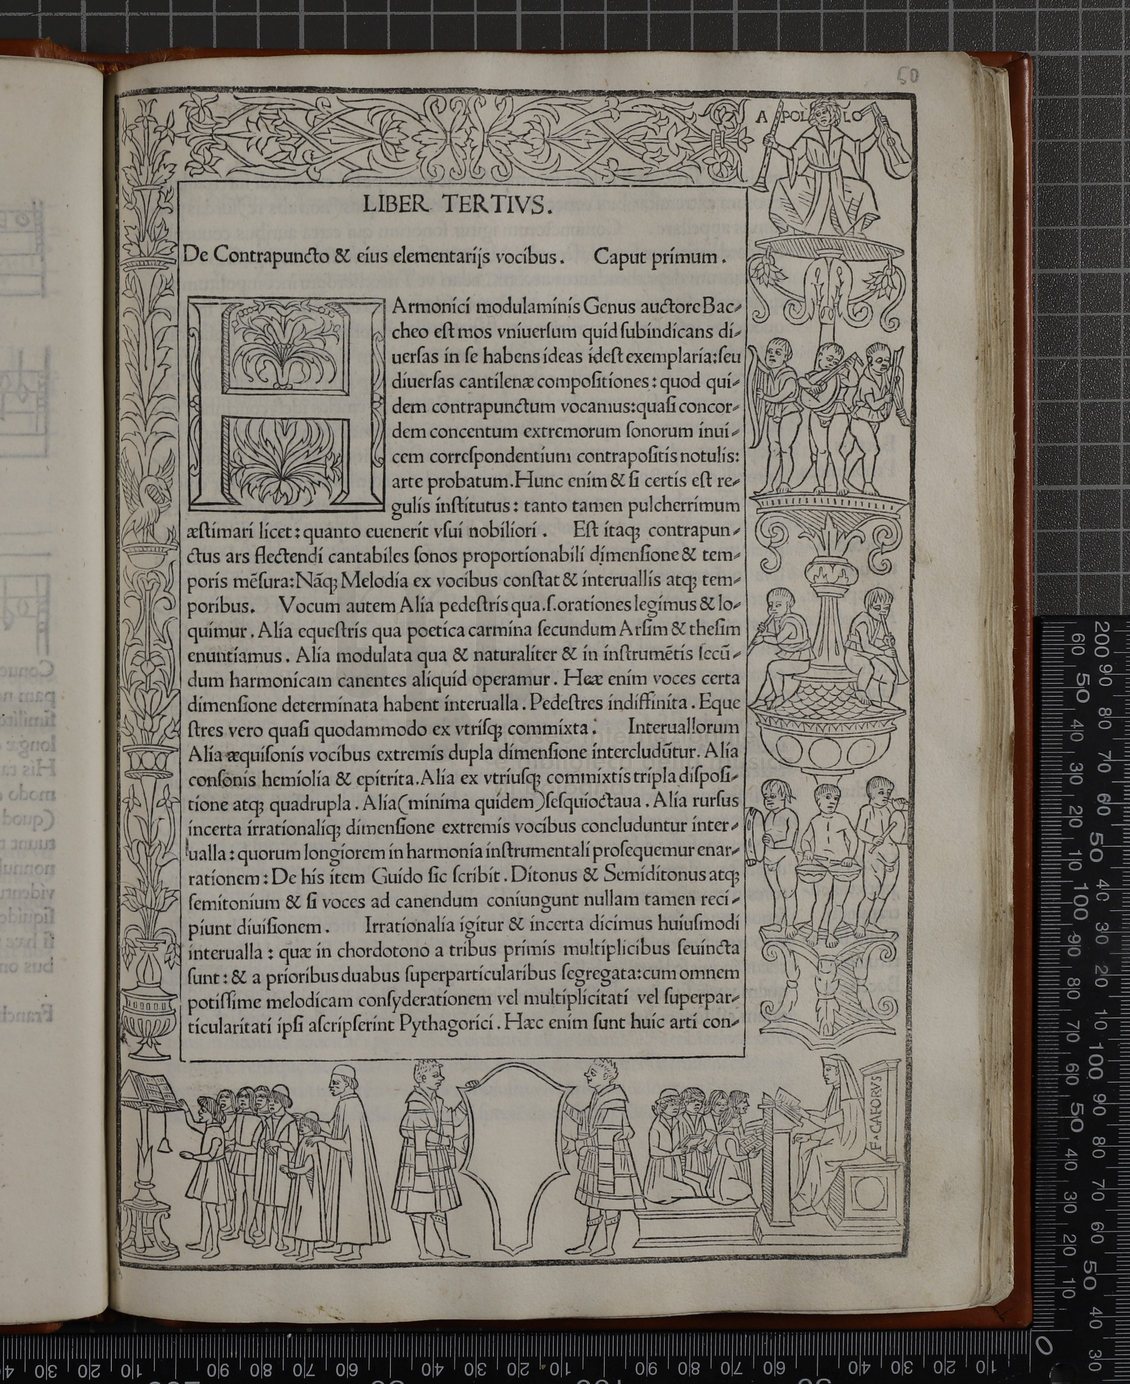 50
APOLLO
LIBER TERTIVS.
De Contrapuncto & eius elementarijs vocibus. Caput primum.
HArmonici modulaminis Genus auctore Bac-
cheo eſt mos vniuerſum quid ſubindicans di-
uerſas in ſe habens ideas ideſt exemplaria: ſeu
diuerſas cantilenæ compoſitiones: quod qui-
dem contrapunctum vocamus: quaſi concor-
dem concentum extremorum ſonorum inui-
cem correſpondentium contrapoſitis notulis:
arte probatum. Hunc enim & ſi certis eſt re-
gulis inſtitutus: tanto tamen pulcherrimum
æſtimari licet: quanto euenerit vſui nobiliori. Eſt itaq; contrapun-
ctus ars flectendi cantabiles ſonos proportionabili dimenſione & tem-
poris mẽſura: Nãq; Melodia ex vocibus conſtat & interuallis atq; tem-
poribus. Vocum autem Alia pedeſtris qua.ſ.orationes legimus & lo-
quimur. Alia equeſtris qua poetica carmina ſecundum Arſim & theſim
enuntiamus. Alia modulata qua & naturaliter & in inſtrumẽtis ſecũ-
dum harmonicam canentes aliquid operamur. Hæ enim voces certa
dimenſione determinata habent interualla. Pedeſtres indiffinita. Eque
ſtres vero quaſi quodammodo ex vtriſq; commixta. Interuallorum
Alia æquiſonis vocibus extremis dupla dimenſione intercludũtur. Alia
conſonis hemiolia & epitrita. Alia ex vtriuſq; commixtis tripla diſpoſi-
tione atq; quadrupla. Alia (minima quidem) ſeſquioctaua. Alia rurſus
incerta irrationaliq; dimenſione extremis vocibus concluduntur inter-
ualla: quorum longiorem in harmonia inſtrumentali proſequemur enar-
rationem: De his item Guido ſic ſcribit. Ditonus & Semiditonus atq;
ſemitonium & ſi voces ad canendum coniungunt nullam tamen reci-
piunt diuiſionem. Irrationalia igitur & incerta dicimus huiuſmodi
interualla: quæ in chordotono a tribus primis multiplicibus ſeuincta
ſunt: & a prioribus duabus ſuperparticularibus ſegregata: cum omnem
potiſſime melodicam conſyderationem vel multiplicitati vel ſuperpar-
ticularitati ipſi aſcripſerint Pythagorici. Hæc enim ſunt huic arti con-
F·CAFORVS